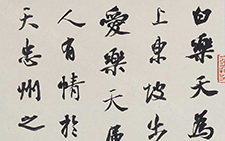 白樂天為
上東坡步
愛樂天屬
人有情於
天忠州之